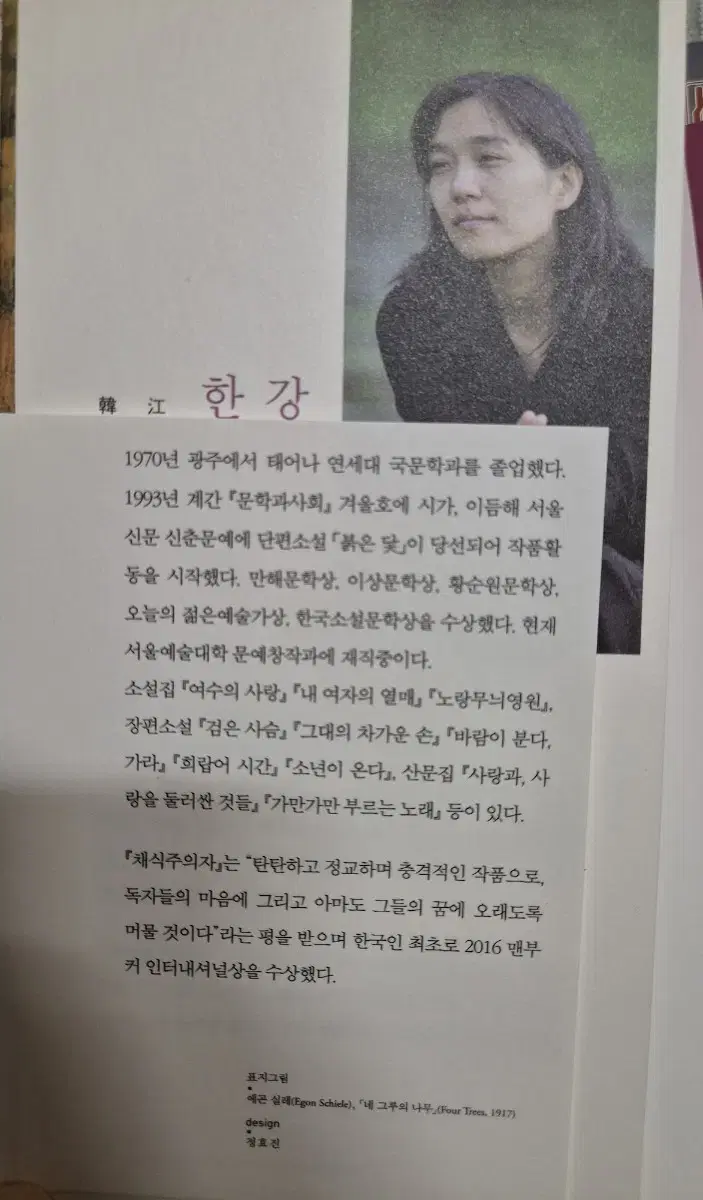 韓 江 한 강
1970년 광주에서 태어나 연세대 국문학과를 졸업했다.
1993년 계간 『문학과사회』 겨울호에 시가, 이듬해 서울
신문 신춘문예에 단편소설 「붉은 닻」이 당선되어 작품활
동을 시작했다. 만해문학상, 이상문학상, 황순원문학상,
오늘의 젊은예술가상, 한국소설문학상을 수상했다. 현재
서울예술대학 문예창작과에 재직중이다.
소설집 『여수의 사랑』 『내 여자의 열매』 『노랑무늬영원』,
장편소설 『검은 사슴』 『그대의 차가운 손』 『바람이 분다,
가라』 『희랍어 시간』 『소년이 온다』, 산문집 『사랑과, 사
랑을 둘러싼 것들』 『가만가만 부르는 노래』 등이 있다.
『채식주의자』는 “탄탄하고 정교하며 충격적인 작품으로,
독자들의 마음에 그리고 아마도 그들의 꿈에 오래도록
머물 것이다”라는 평을 받으며 한국인 최초로 2016 맨부
커 인터내셔널상을 수상했다.
표지그림
에곤 실레(Egon Schiele), 「네 그루의 나무」(Four Trees, 1917)
design
정효진